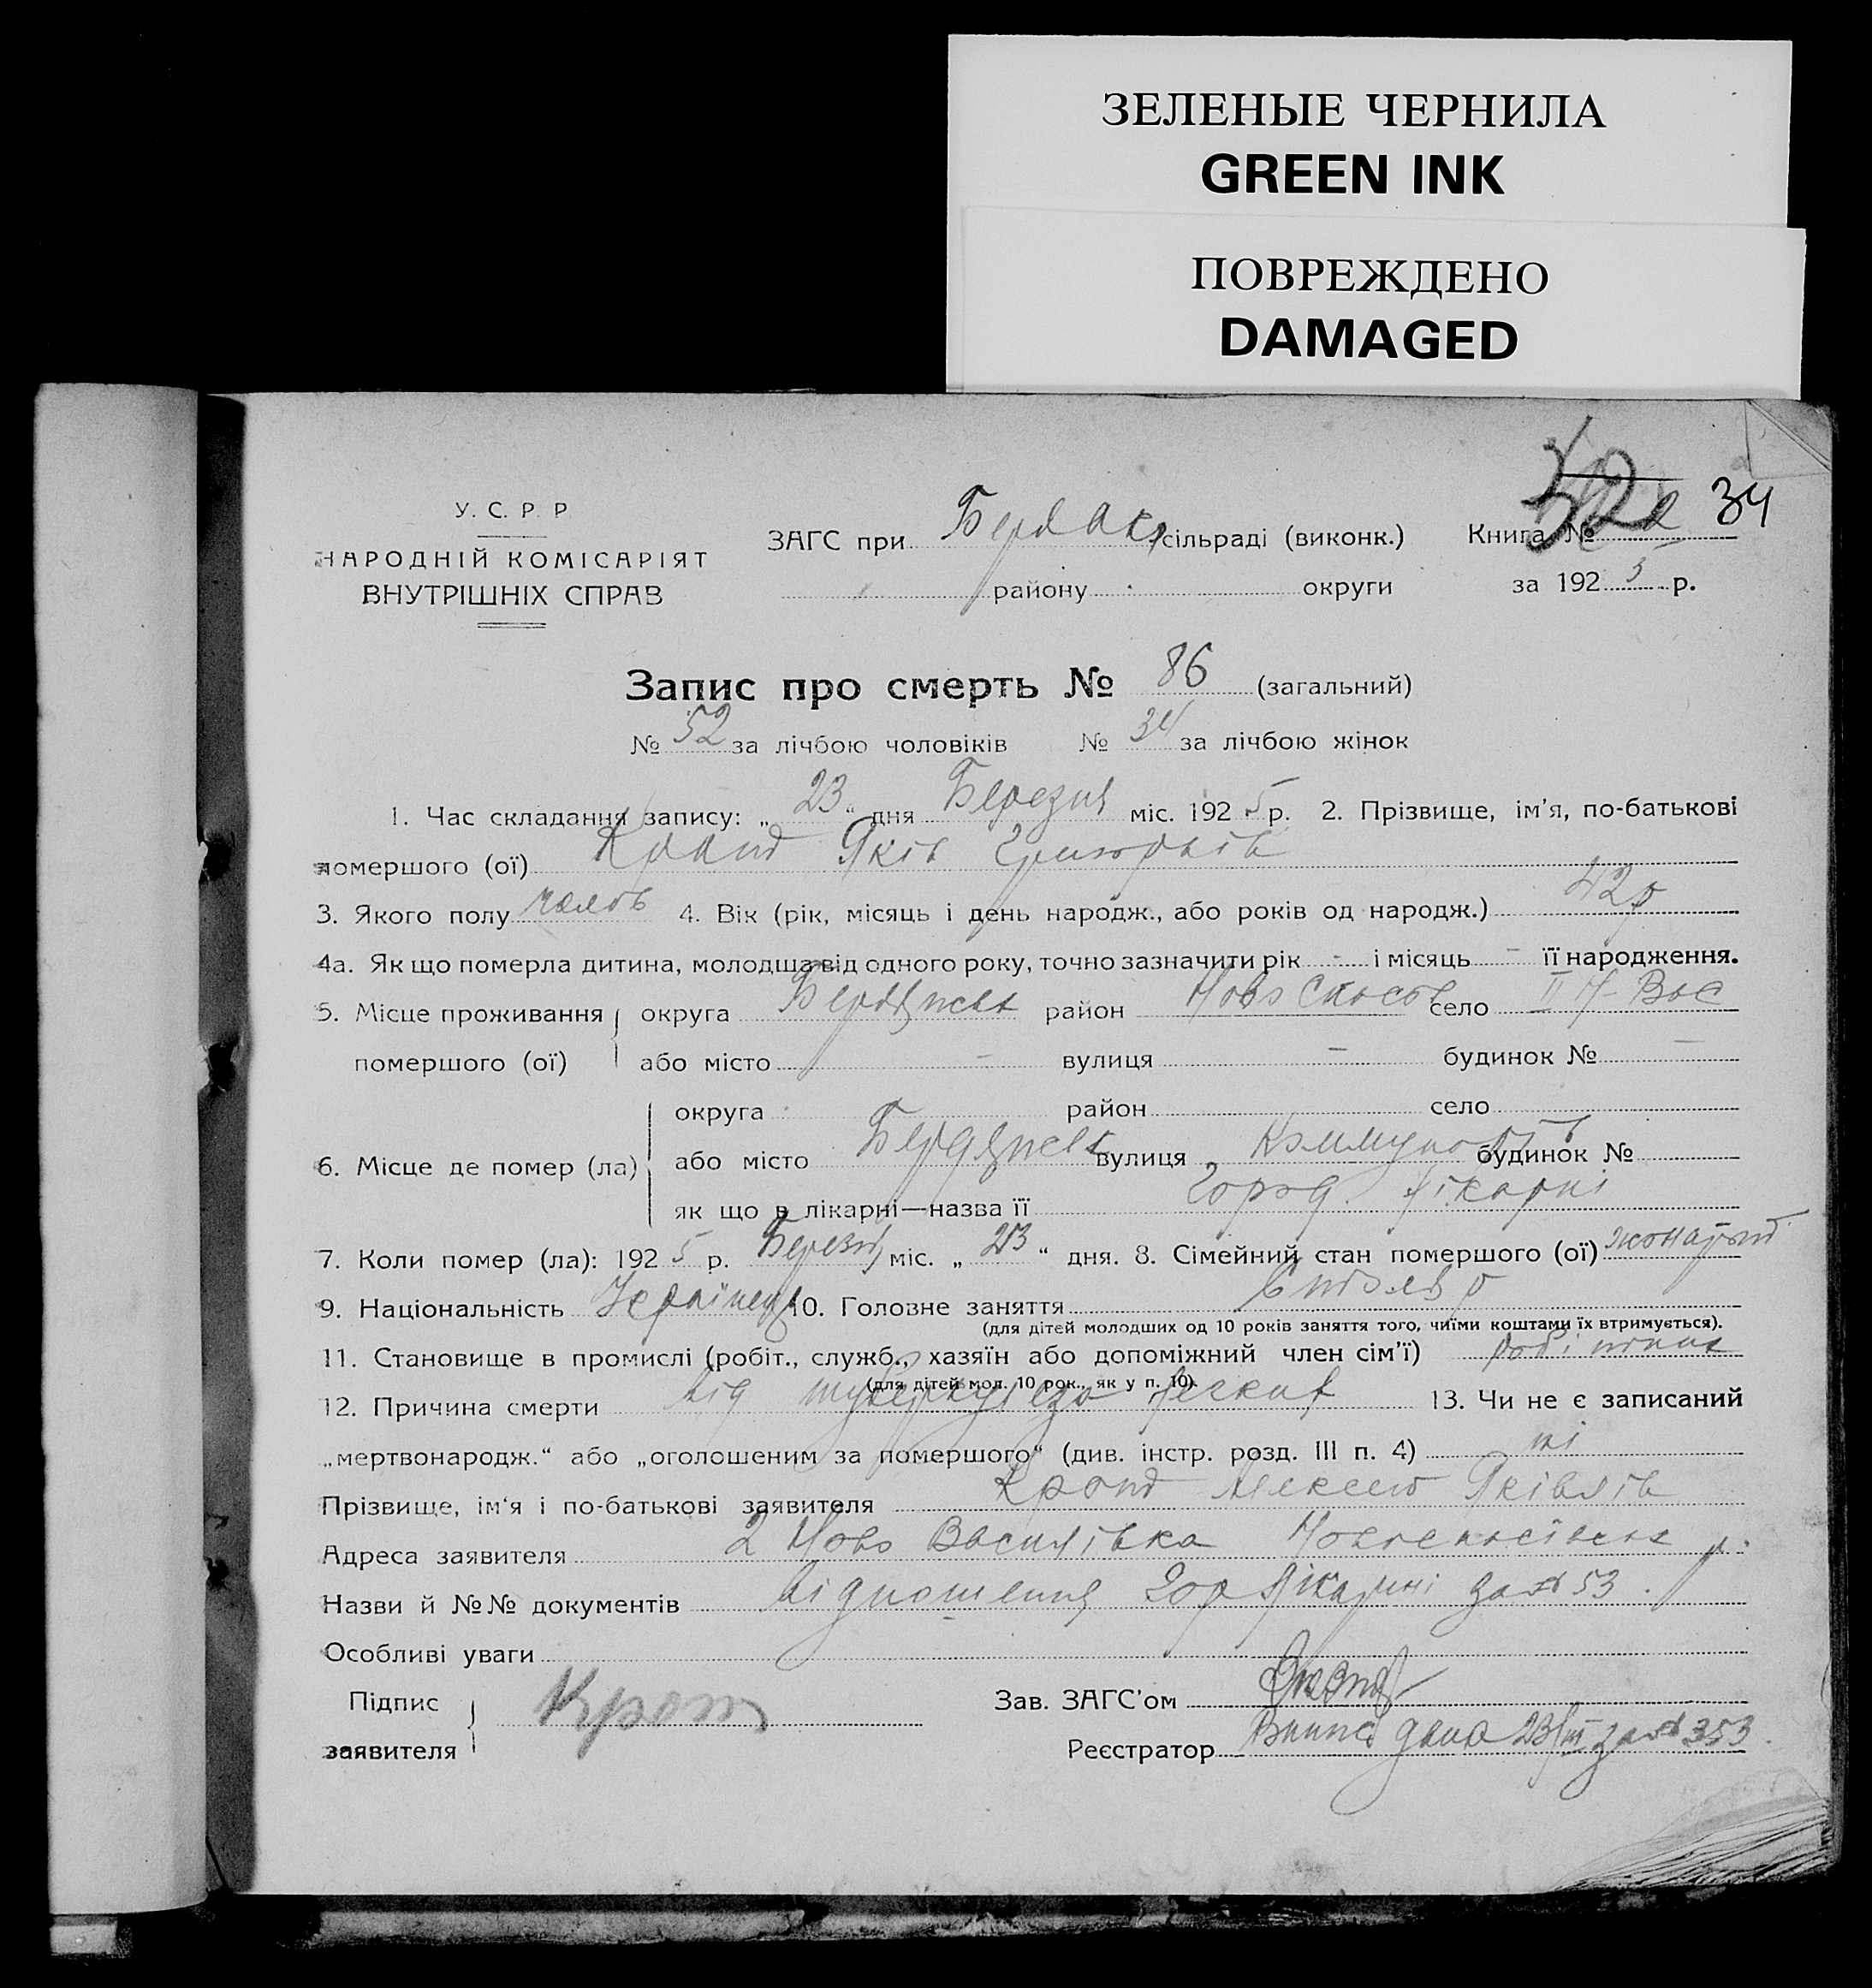 ЗЕЛЕНЫЕ ЧЕРНИЛА
GREEN INK
ПОВРЕЖДЕНО
DAMAGED
34
У. С. Р. Р.
НАРОДНІЙ КОМІСАРІЯТ
ВНУТРІШНІХ СПРАВ
ЗАГС при сільраді (виконк.) Книга №
району округи за 1925 р.
Запис про смерть № 86 (загальний)
№ 52 за лічбою чоловіків № 34 за лічбою жінок
1. Час складання запису: „23“ дня Березня міс. 1925 р. 2. Прізвище, ім'я, по-батькові
помершого (ої) Крот Яків Григорьів
3. Якого полу 4. Вік (рік, місяць і день народж., або років од народж.) 42 р
4а. Як що померла дитина, молодша від одного року, точно зазначити рік - і місяць - її народження.
5. Місце проживання округа Бердянськ район Ново Спасов село II Н-Вас
помершого (ої) або місто - вулиця - будинок № -
округа район село
6. Місце де помер (ла) або місто Бердянськ вулиця будинок №
як що в лікарні—назва її Город. лікарні
7. Коли помер (ла): 1925 р. Березня міс. „23“ дня. 8. Сімейний стан помершого (ої) жонатий
9. Національність Українець 10. Головне заняття столяр
(для дітей молодших од 10 років заняття того, чиїми коштами їх втримується).
11. Становище в промислі (робіт., служб., хазяїн або допоміжний член сім'ї) робітник
(для дітей мол. 10 рок., як у п. 10).
12. Причина смерти від туберкульоза легких 13. Чи не є записаний
„мертвонародж.“ або „оголошеним за помершого“ (див. інстр. розд. III п. 4) ні
Прізвище, ім'я і по-батькові заявителя Крот Алексей Яківлів
Адреса заявителя 2 Ново Василівка р.
Назви й №№ документів відношення Гор Лікарні за № 53.
Особливі уваги
Підпис Крот Зав. ЗАГС'ом
заявителя Реєстратор Випис дана 23/III за № 353.